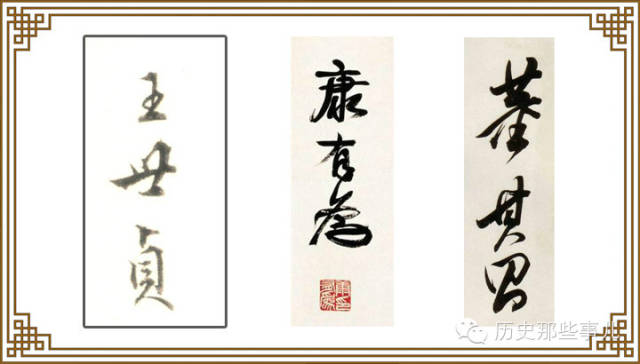 王世贞
康有為
董其昌
历史那些事儿